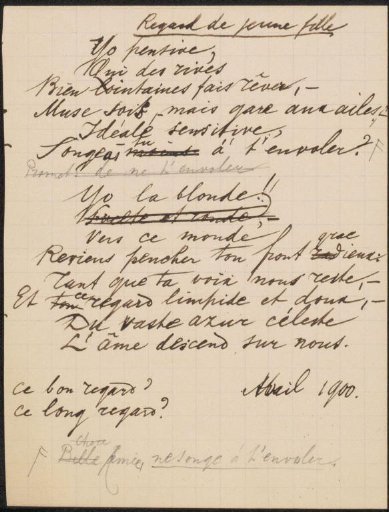 Regard de jeune fille
Yo pensive,
Qui des rives
Bien lointaines fais rêver, –
Muse sois, mais gare aux ailes,
Idéale sensitive,
Songeais tu moins à t'envoler?
Promet de ne t'envoler
Yo la blonde!
Svelte et ronde, –
Vers ce monde
Reviens pencher ton front gracieux
Tant que ta voix nous reste, –
Et ce regard limpide et doux, –
Du vaste azur céleste
L'âme descend sur nous.
ce bon regard? Avril 1900.
ce long regard?
Belle chère Amie, ne songe à t'envoler.